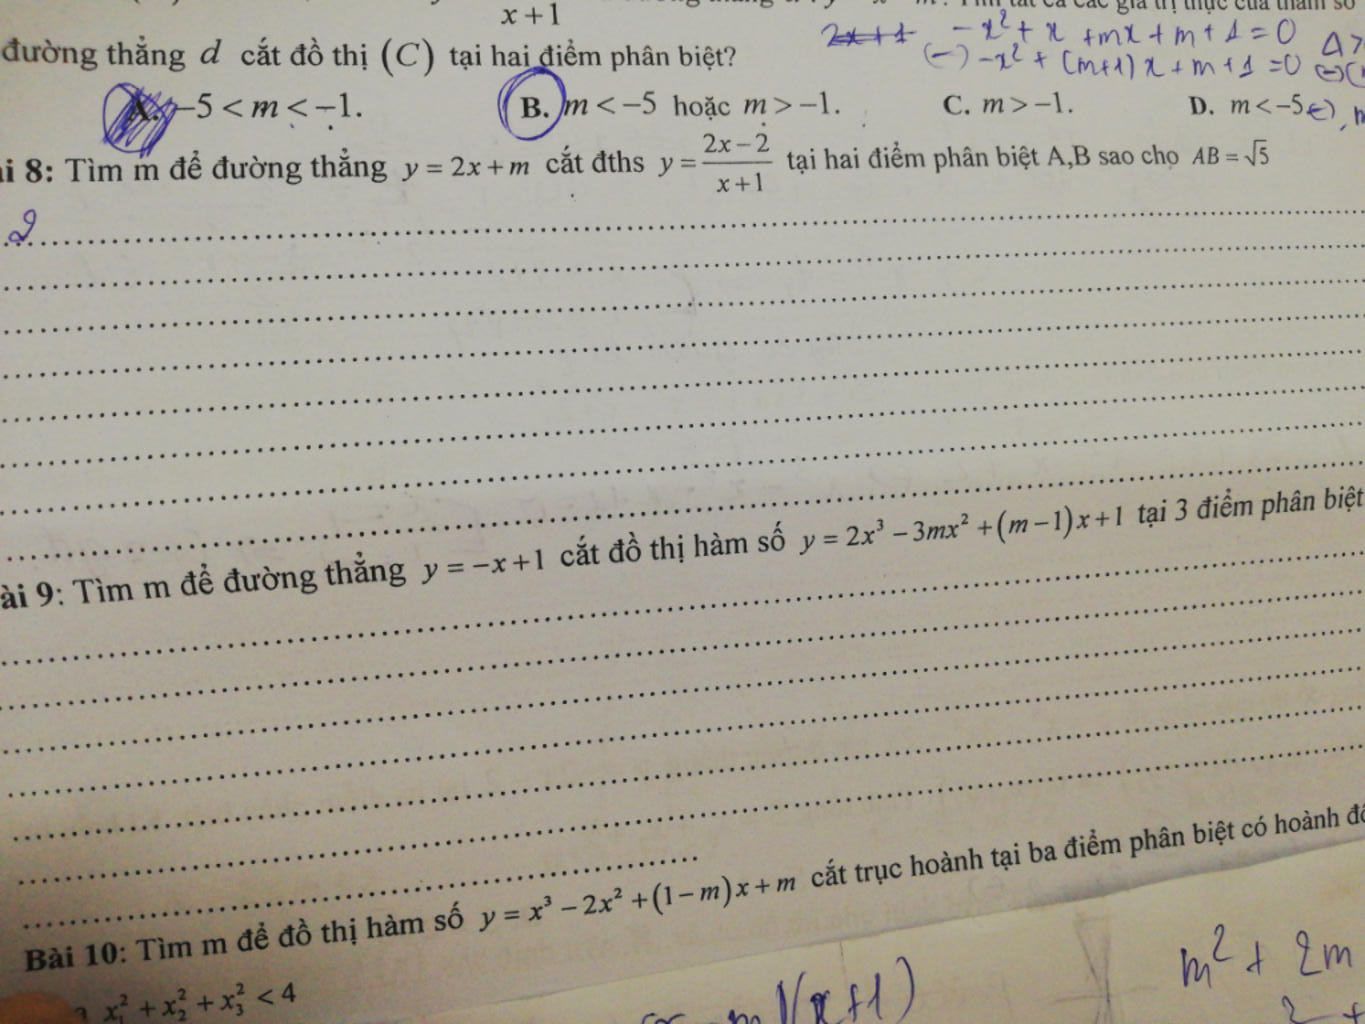 x+1
2x+1 -x²+x+mx+m+1=0
đường thẳng d cắt đồ thị (C) tại hai điểm phân biệt?
(-) -x²+(m+1)x+m+1=0
A. -5<m<-1. B. m<-5 hoặc m>-1. C. m>-1. D. m<-5
8: Tìm m để đường thẳng y=2x+m cắt đths y=\frac{2x-2}{x+1} tại hai điểm phân biệt A,B sao cho AB=√5
ài 9: Tìm m để đường thẳng y=-x+1 cắt đồ thị hàm số y=2x³-3mx²+(m-1)x+1 tại 3 điểm phân biệt
Bài 10: Tìm m để đồ thị hàm số y=x³-2x²+(1-m)x+m cắt trục hoành tại ba điểm phân biệt có hoành
x₁²+x₂²+x₃²<4
m²+2m
)(x+1)